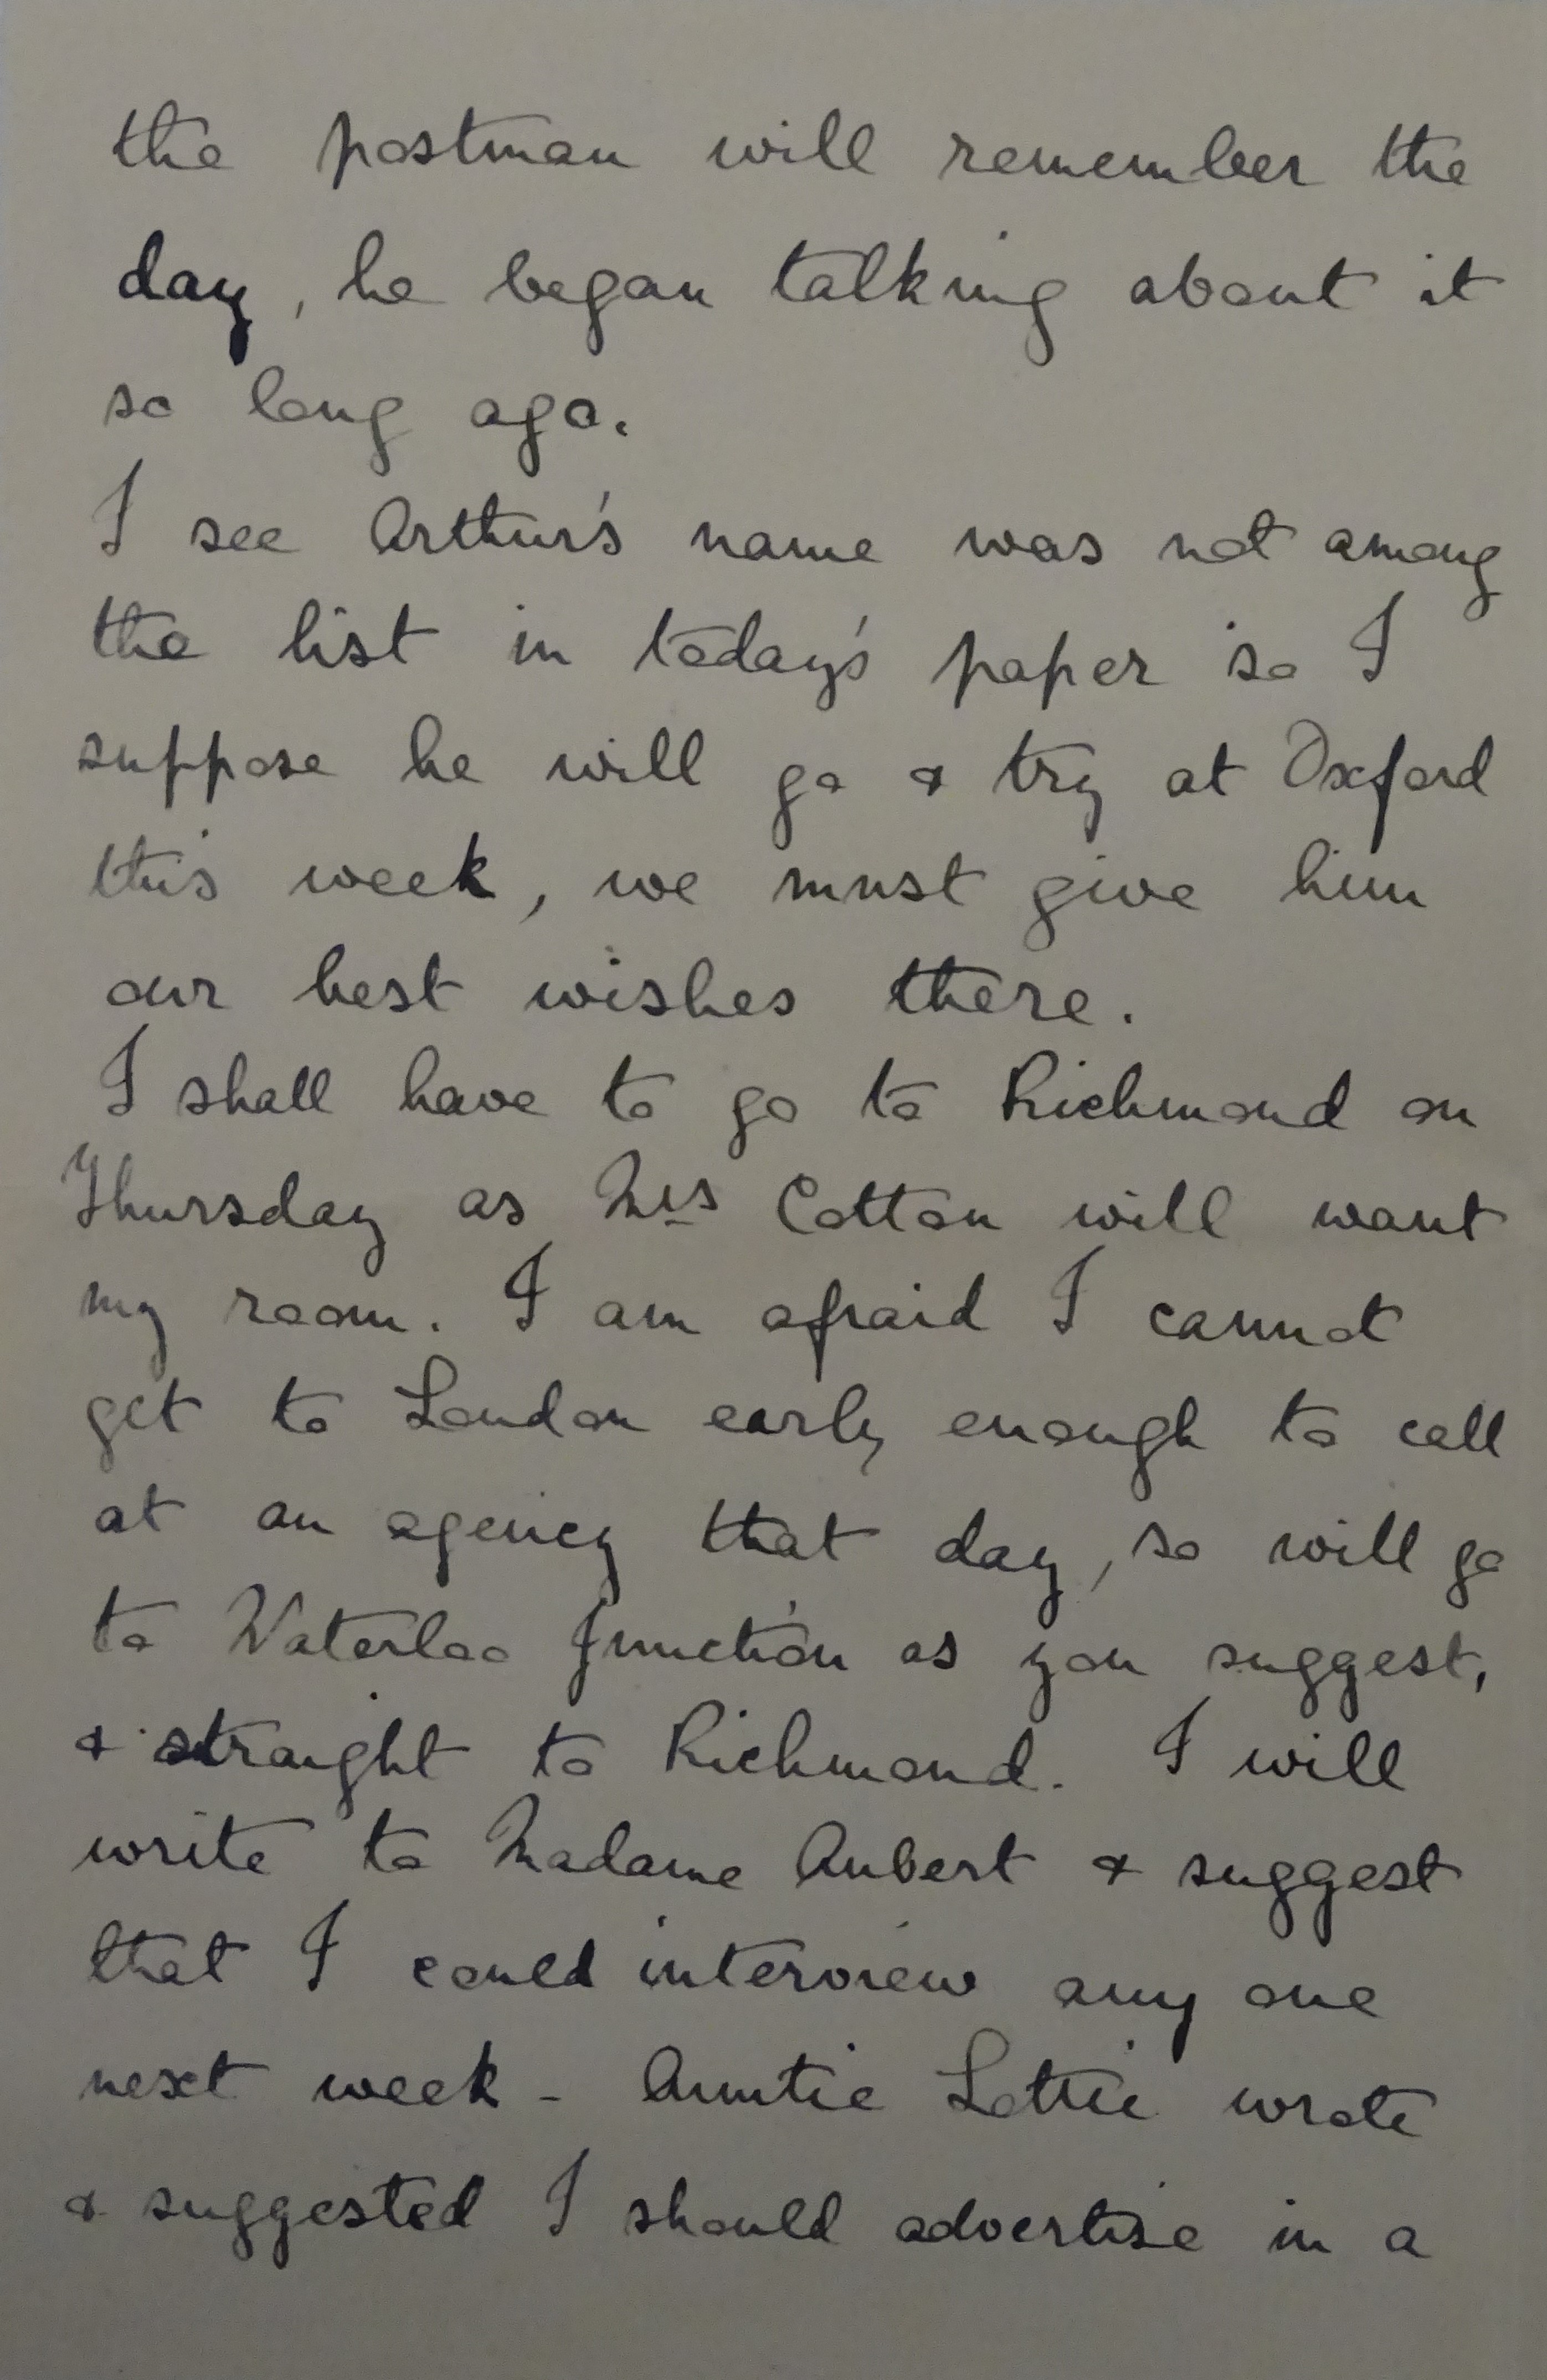 the postman will remember the
day, he began talking about it
so long ago.
I see Arthur's name was not among
the list in today's paper so I
suppose he will go & try at Oxford
this week, we must give him
our best wishes there.
I shall have to go to Richmond on
Thursday as Mrs Cotton will want
my room. I am afraid I cannot
get to London early enough to call
at an agency that day, so will go
to Waterloo Junction as you suggest,
& straight to Richmond. I will
write to Madame Aubert & suggest
that I could interview any one
next week - Auntie Lottie wrote
& suggested I should advertise in a